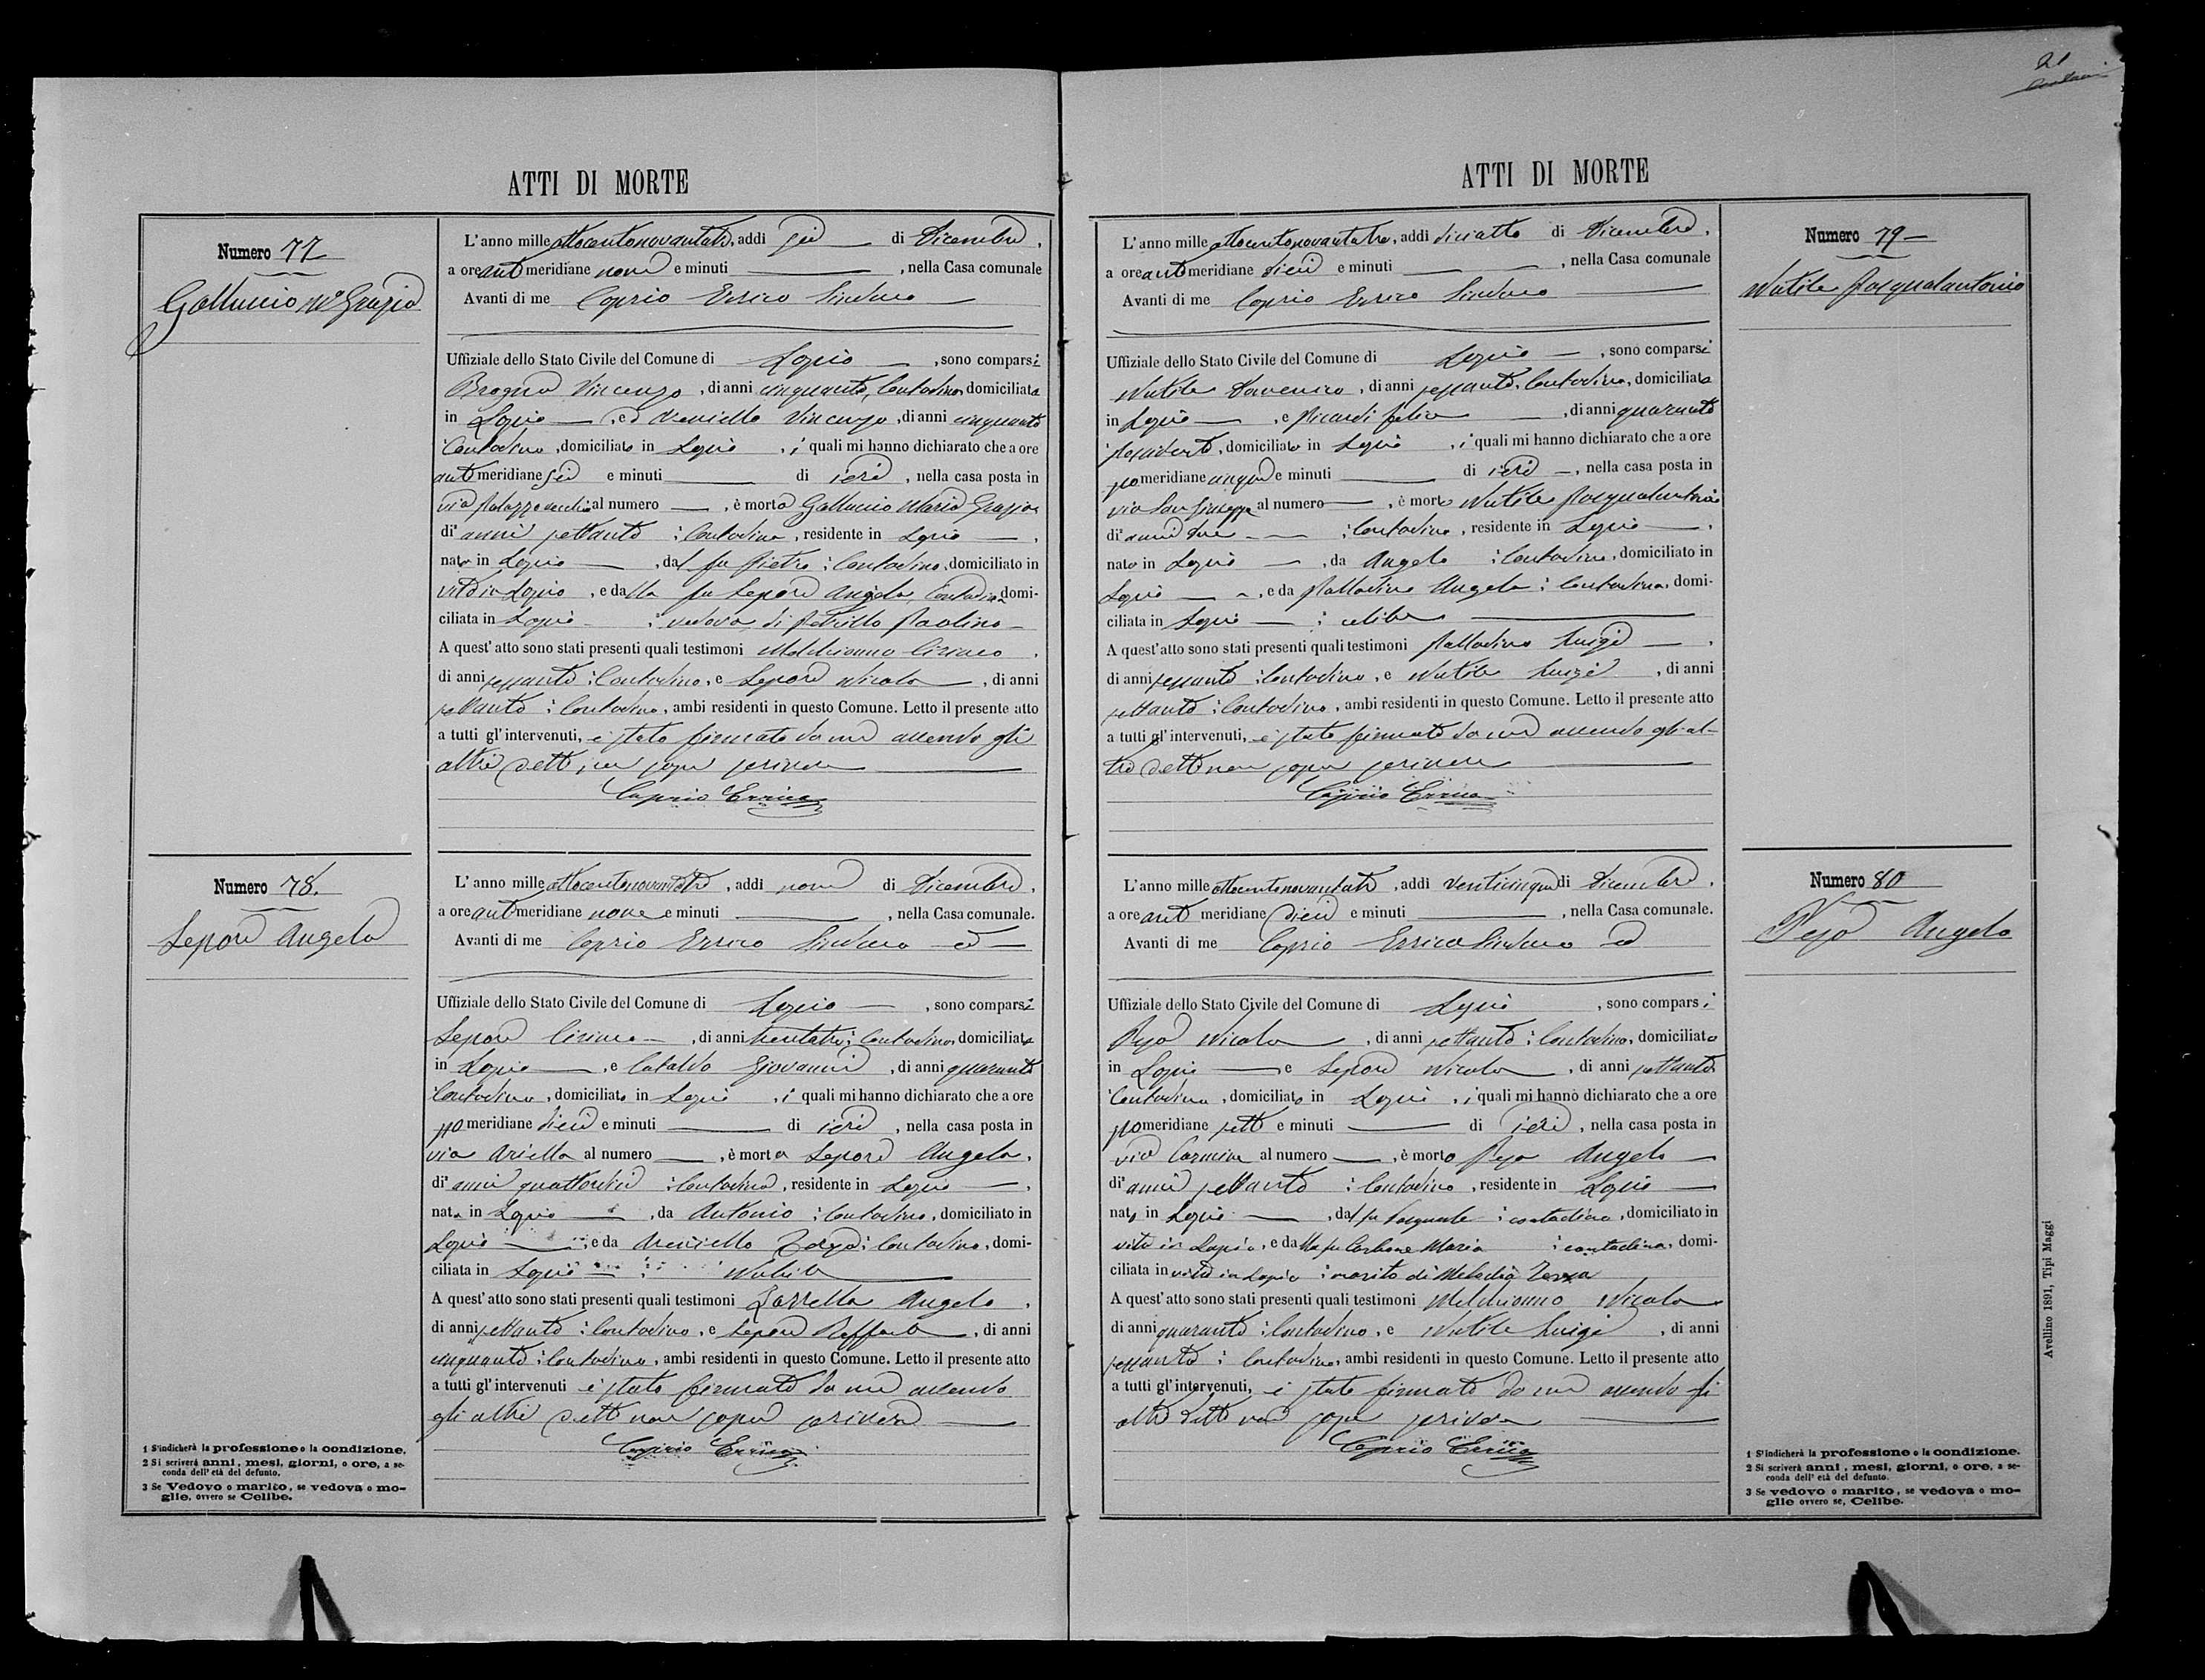 21
ATTI DI MORTE
Numero 77
Galluccio Mª Grazia
L'anno mille ottocentonovantatre, addi sei di Dicembre,
a ore antimeridiane nove e minuti, nella Casa comunale
Avanti di me Caprio Errico Sindaco
Uffiziale dello Stato Civile del Comune di Lapio, sono comparsi
Brogna Vincenzo, di anni cinquanta, Contadino, domiciliato
in Lapio, ed Meniello Vincenzo, di anni cinquanta
Contadino, domiciliato in Lapio, i quali mi hanno dichiarato che a ore
antimeridiane sei e minuti di ieri, nella casa posta in
via Palazzovecchio al numero, è morta Galluccio Maria Grazia
di anni settanta Contadina, residente in Lapio,
nata in Lapio, dal fu Pietro Contadino, domiciliato in
vita in Lapio, e dalla fu Lepore Angela, Contadina domi-
ciliata in Lapio vedova di Petrillo Paolino
A quest'atto sono stati presenti quali testimoni Melchionno Ciriaco,
di anni sessanta Contadino, e Lepore Nicola, di anni
settanta Contadino, ambi residenti in questo Comune. Letto il presente atto
a tutti gl'intervenuti, è stato firmato da me avendo gli
altri detto non saper scrivere
Caprio Errico
Numero 78.
Lepore Angela
L'anno mille ottocentonovantatre, addi nove di Dicembre,
a ore antimeridiane nove e minuti, nella Casa comunale.
Avanti di me Caprio Errico Sindaco ed
Uffiziale dello Stato Civile del Comune di Lapio, sono comparsi
Lepore Ciriaco, di anni trentatre Contadino, domiciliato
in Lapio, e Cataldo Giovanni, di anni quaranta
Contadino, domiciliato in Lapio, i quali mi hanno dichiarato che a ore
pomeridiane dieci e minuti di ieri, nella casa posta in
via Ariella al numero, è morta Lepore Angela,
di anni quattordici Contadina, residente in Lapio,
nata in Lapio, da Antonio Contadino, domiciliato in
Lapio, e da Meniello Contadina, domi-
ciliata in Lapio Nubile
A quest'atto sono stati presenti quali testimoni Zarrella Angelo,
di anni settanta Contadino, e Lepore Raffaele, di anni
cinquanta Contadino, ambi residenti in questo Comune. Letto il presente atto
a tutti gl'intervenuti è stato firmato da me avendo
gli altri detto non saper scrivere
Caprio Errico
1 S'indicherà la professione o la condizione.
2 Si scriverà anni, mesi, giorni, o ore, a se-
conda dell'età del defunto.
3 Se Vedovo o marito, se vedova o mo-
glie, ovvero se Celibe.
ATTI DI MORTE
L'anno mille ottocentonovantatre, addi diciotto di Dicembre,
a ore antimeridiane dieci e minuti, nella Casa comunale
Avanti di me Caprio Errico Sindaco
Uffiziale dello Stato Civile del Comune di Lapio, sono comparsi
Nutile Domenico, di anni sessanta, Contadino, domiciliato
in Lapio, e Picardi Felice, di anni quaranta
possidente, domiciliato in Lapio, i quali mi hanno dichiarato che a ore
pomeridiane cinque e minuti di ieri, nella casa posta in
via San Giuseppe al numero, è morto Nutile Pasqualantonio
di anni due Contadino, residente in Lapio,
nato in Lapio, da Angelo Contadino, domiciliato in
Lapio, e da Palladino Angela Contadina, domi-
ciliata in Lapio celibe
A quest'atto sono stati presenti quali testimoni Palladino Luigi,
di anni sessanta Contadino, e Nutile Luigi, di anni
settanta Contadino, ambi residenti in questo Comune. Letto il presente atto
a tutti gl'intervenuti, è stato firmato da me avendo gli al-
tri detto non saper scrivere
Caprio Errico
Numero 79
Nutile Pasqualantonio
L'anno mille ottocentonovantatre, addi venticinque di Dicembre,
a ore antimeridiane dieci e minuti, nella Casa comunale.
Avanti di me Caprio Errico Sindaco ed
Uffiziale dello Stato Civile del Comune di Lapio, sono comparsi
Pepe Nicola, di anni settanta Contadino, domiciliato
in Lapio e Lepore Nicola, di anni settanta
Contadino, domiciliato in Lapio, i quali mi hanno dichiarato che a ore
pomeridiane sette e minuti di ieri, nella casa posta in
via Carmine al numero, è morto Pepe Angelo
di anni settanta Contadino, residente in Lapio
nato in Lapio, dal fu Pasquale contadino, domiciliato in
vita in Lapio, e dalla fu Carbone Maria contadina, domi-
ciliata in vita in Lapio marito di
A quest'atto sono stati presenti quali testimoni Melchionno Nicola
di anni quaranta Contadino, e Nutile Luigi, di anni
sessanta Contadino, ambi residenti in questo Comune. Letto il presente atto
a tutti gl'intervenuti, è stato firmato da me avendo gli
altri detto non saper scrivere
Caprio Errico
Numero 80
Pepe Angelo
1 S'indicherà la professione o la condizione.
2 Si scriverà anni, mesi, giorni, o ore, a se-
conda dell'età del defunto.
3 Se vedovo o marito, se vedova o mo-
glie ovvero se, Celibe.
Avellino 1891, Tipi Maggi